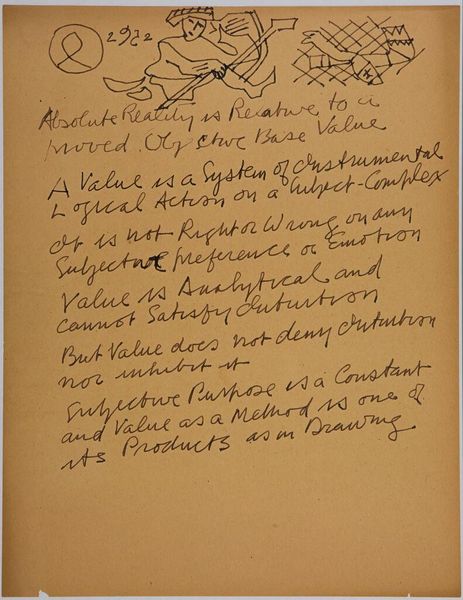 2962
Absolute Reality is Relative to a
proved Objective Base Value
A Value is a System of Instrumental
Logical Action on a Subject-Complex
It is not Right or Wrong or any
Subjective preference or Emotion
Value is Analytical and
cannot Satisfy Intuition
But Value does not deny Intuition
nor inhibit it
Subjective Purpose is a Constant
and Value as a Method is one of
its Products as in Drawing